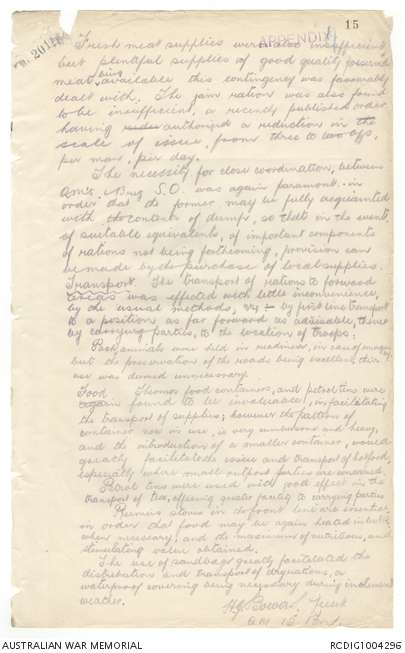 15
APPENDIX
Fresh meat supplies were also insufficient
but plentiful supplies of good quality preserved
meat being available this contingency was favorably
dealt with. The jam ration was also found
to be insufficient, a recently published order
having authorized a reduction in the
scale of issue, from three to two ozs.
per man, per day.
The necessity for close coordination, between
QM's, & Brig S.O. was again paramount in
order that the former may be fully acquainted
with the contents of dump, so that in the event
of suitable equivalents, of important components
of rations not being forthcoming, provision can
be made by the purchase of local supplies.
Transport. The transport of rations to forward
areas was effected with little inconvenience,
by the usual methods, viz - by first line transport
to a position as far forward as advisable, thence
by carrying parties, to the location of troops.
Pack animals were held in readiness, in case of emergency
but the preservation of the roads being excellent, their
use was deemed unnecessary.
Food Thermos food containers, and petrol tins were
again found to be invaluable, in facilitating
the transport of supplies; however the pattern of
container now in use, is very cumbersome and heavy,
and the introduction of a smaller container, would
greatly facilitate the issue and transport of hot food,
especially where small outpost parties are concerned.
Petrol tins were used with good effect in the
transport of tea, offering greater facility to carrying parties
Primus stoves in the front line are essential
in order that food may be again heated
when necessary, and the maximum of nutritious, and
stimulating value obtained.
The use of sandbags greatly facilitated the
distribution and transport of dry rations, a
waterproof covering being necessary during inclement
weather.
Lieut
QM 15 Bn
AUSTRALIAN WAR MEMORIAL
RCDIG1004296